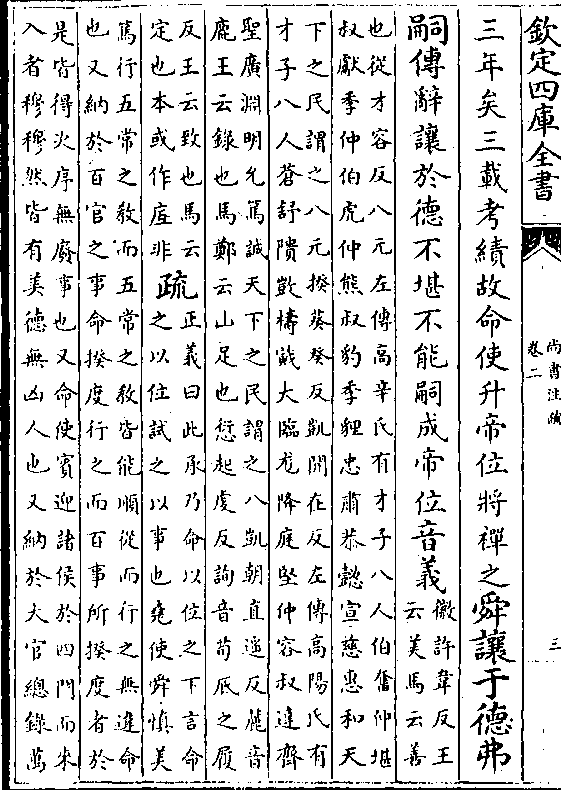 欽定四庫全書
尚書注疏
卷二
三
三年矣三載考績故命使升帝位將禪之舜讓于德弗
嗣傳辭讓於德不堪不能嗣成帝位音義徽許韋反王
云美馬云善
也從才容反八元左傳高辛氏有才子八人伯奮仲堪
叔獻季仲伯虎仲熊叔豹季貍忠肅恭懿宣慈惠和天
下之民謂之八元揆葵癸反凱開在反左傳高陽氏有
才子八人蒼舒隤敳檮戭大臨尨降庭堅仲容叔達齊
聖廣淵明允篤誠天下之民謂之八凱朝直遥反麓音
鹿王云錄也馬鄭云山足也愆起虔反詢音荀厎之履
反王云致也馬云
定也本或作庢非
疏正義曰此承乃命以位之下言命
之以位試之以事也堯使舜慎美
篤行五常之教而五常之教皆能順從而行之無違命
也又納於百官之事命揆度行之而百事所揆度者於
是皆得次序無廢事也又命使賓迎諸侯於四門而来
入者穆穆然皆有美德無凶人也又納於大官總錄萬